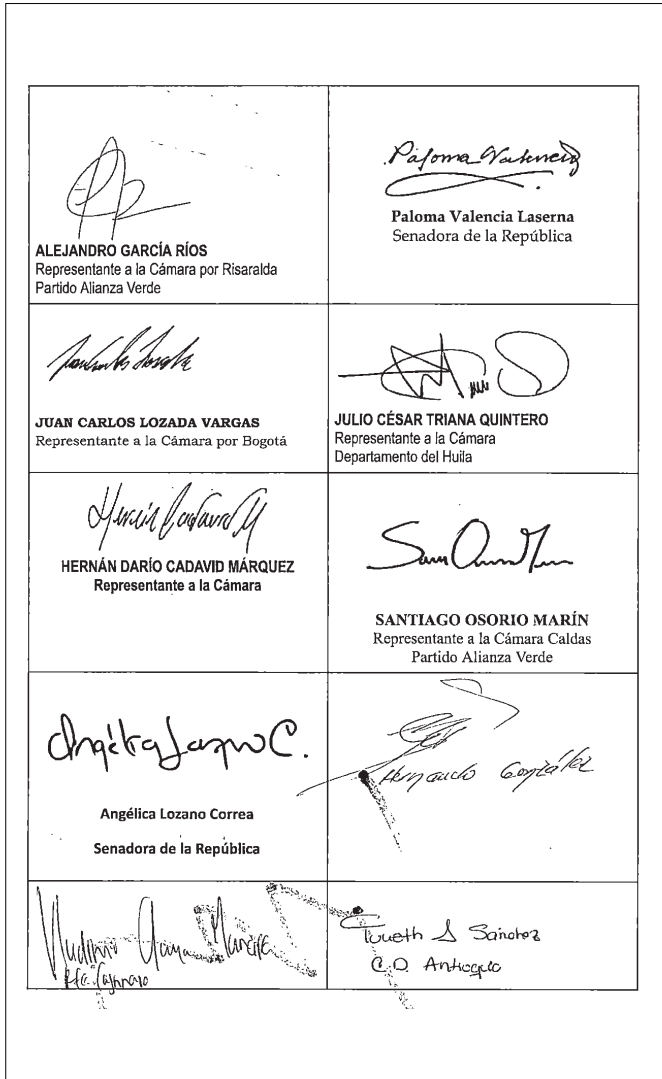 ALEJANDRO GARCÍA RÍOS
Representante a la Cámara por Risaralda
Partido Alianza Verde
Paloma Valencia
Paloma Valencia Laserna
Senadora de la República
JUAN CARLOS LOZADA VARGAS
Representante a la Cámara por Bogotá
JULIO CÉSAR TRIANA QUINTERO
Representante a la Cámara
Departamento del Huila
Hernán Cadavid M
HERNÁN DARÍO CADAVID MÁRQUEZ
Representante a la Cámara
SANTIAGO OSORIO MARÍN
Representante a la Cámara Caldas
Partido Alianza Verde
Angélica Lozano C.
Angélica Lozano Correa
Senadora de la República
Hernando González
Yulieth S Sánchez
C.D. Antioquia